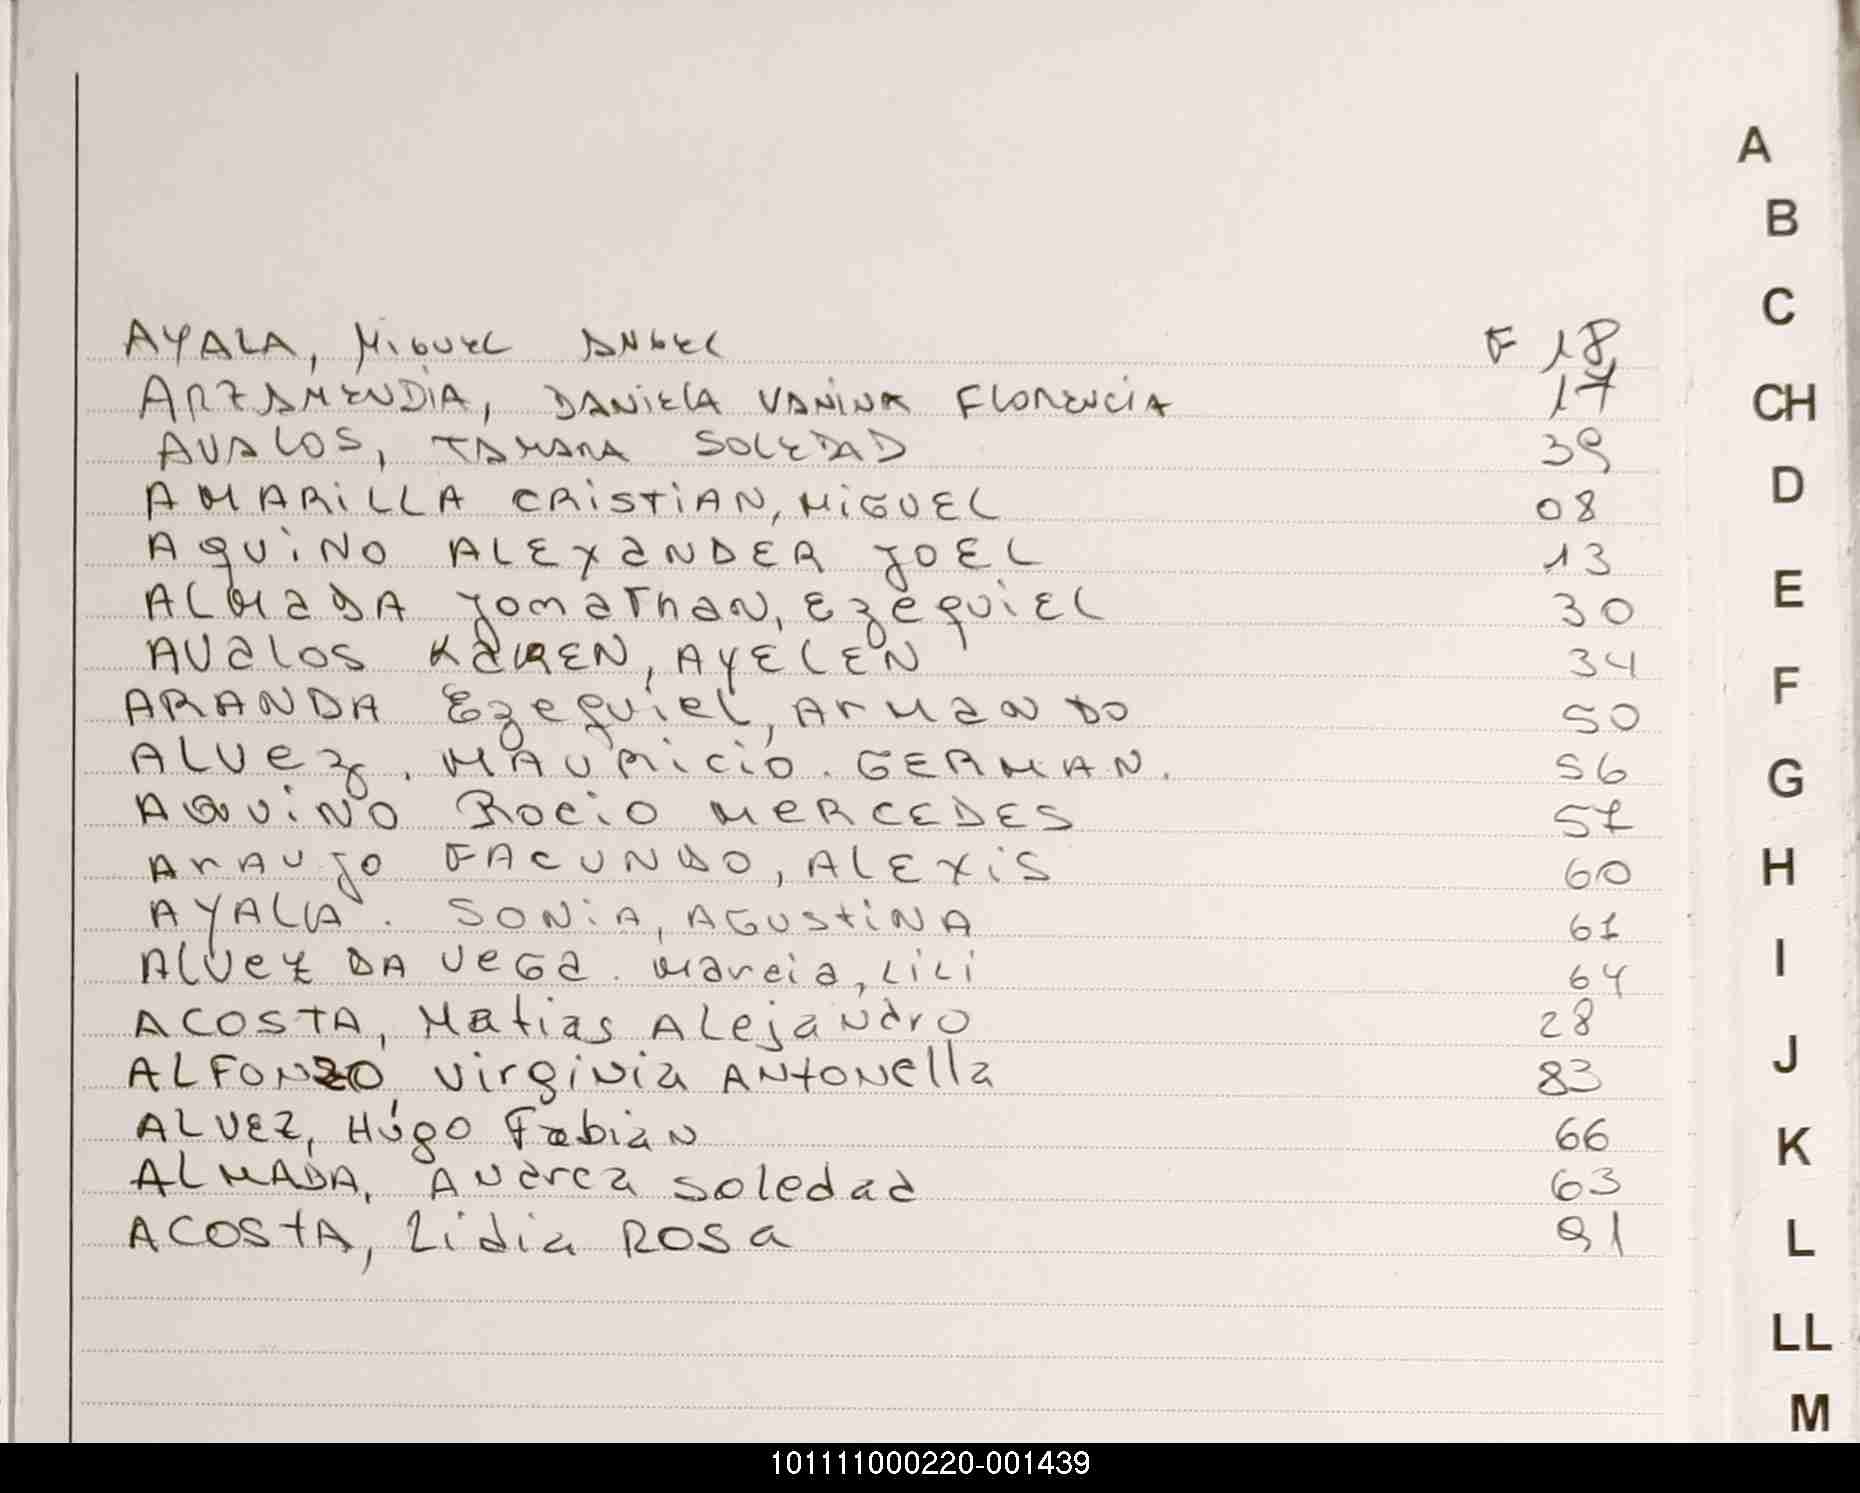 AYALA, MIGUEL ANGEL F 18
ARZAMENDIA, DANIELA VANINA FLORENCIA 17
AVALOS, TAMARA SOLEDAD 39
AMARiLLA CRiSTIAN, MiGUEL 08
AQUiNO ALEXANDER JOEL 13
ALMADA JonaThaN, EzequiEL 30
AVALOS KAREN, AYELEN 34
ARANDA Ezequiel, ArMANDO 50
ALVez. MAURicio. GERMAN. 56
AQUiNO Rocio MERCEDES 57
ArAUJO FACUNDO, ALEXiS 60
AYALA. SONiA, AGUStiNA 61
Alvez DA VEGa. Marcia, LiLi 64
ACOSTA, Matias Alejandro 28
ALFONZO, Virginia ANtonella 83
ALVEZ, Húgo Fabian 66
ALMADA, Andrea Soledad 63
ACOSTA, Lidia ROSa 91
A
B
C
CH
D
E
F
G
H
I
J
K
L
LL
M
101111000220-001439